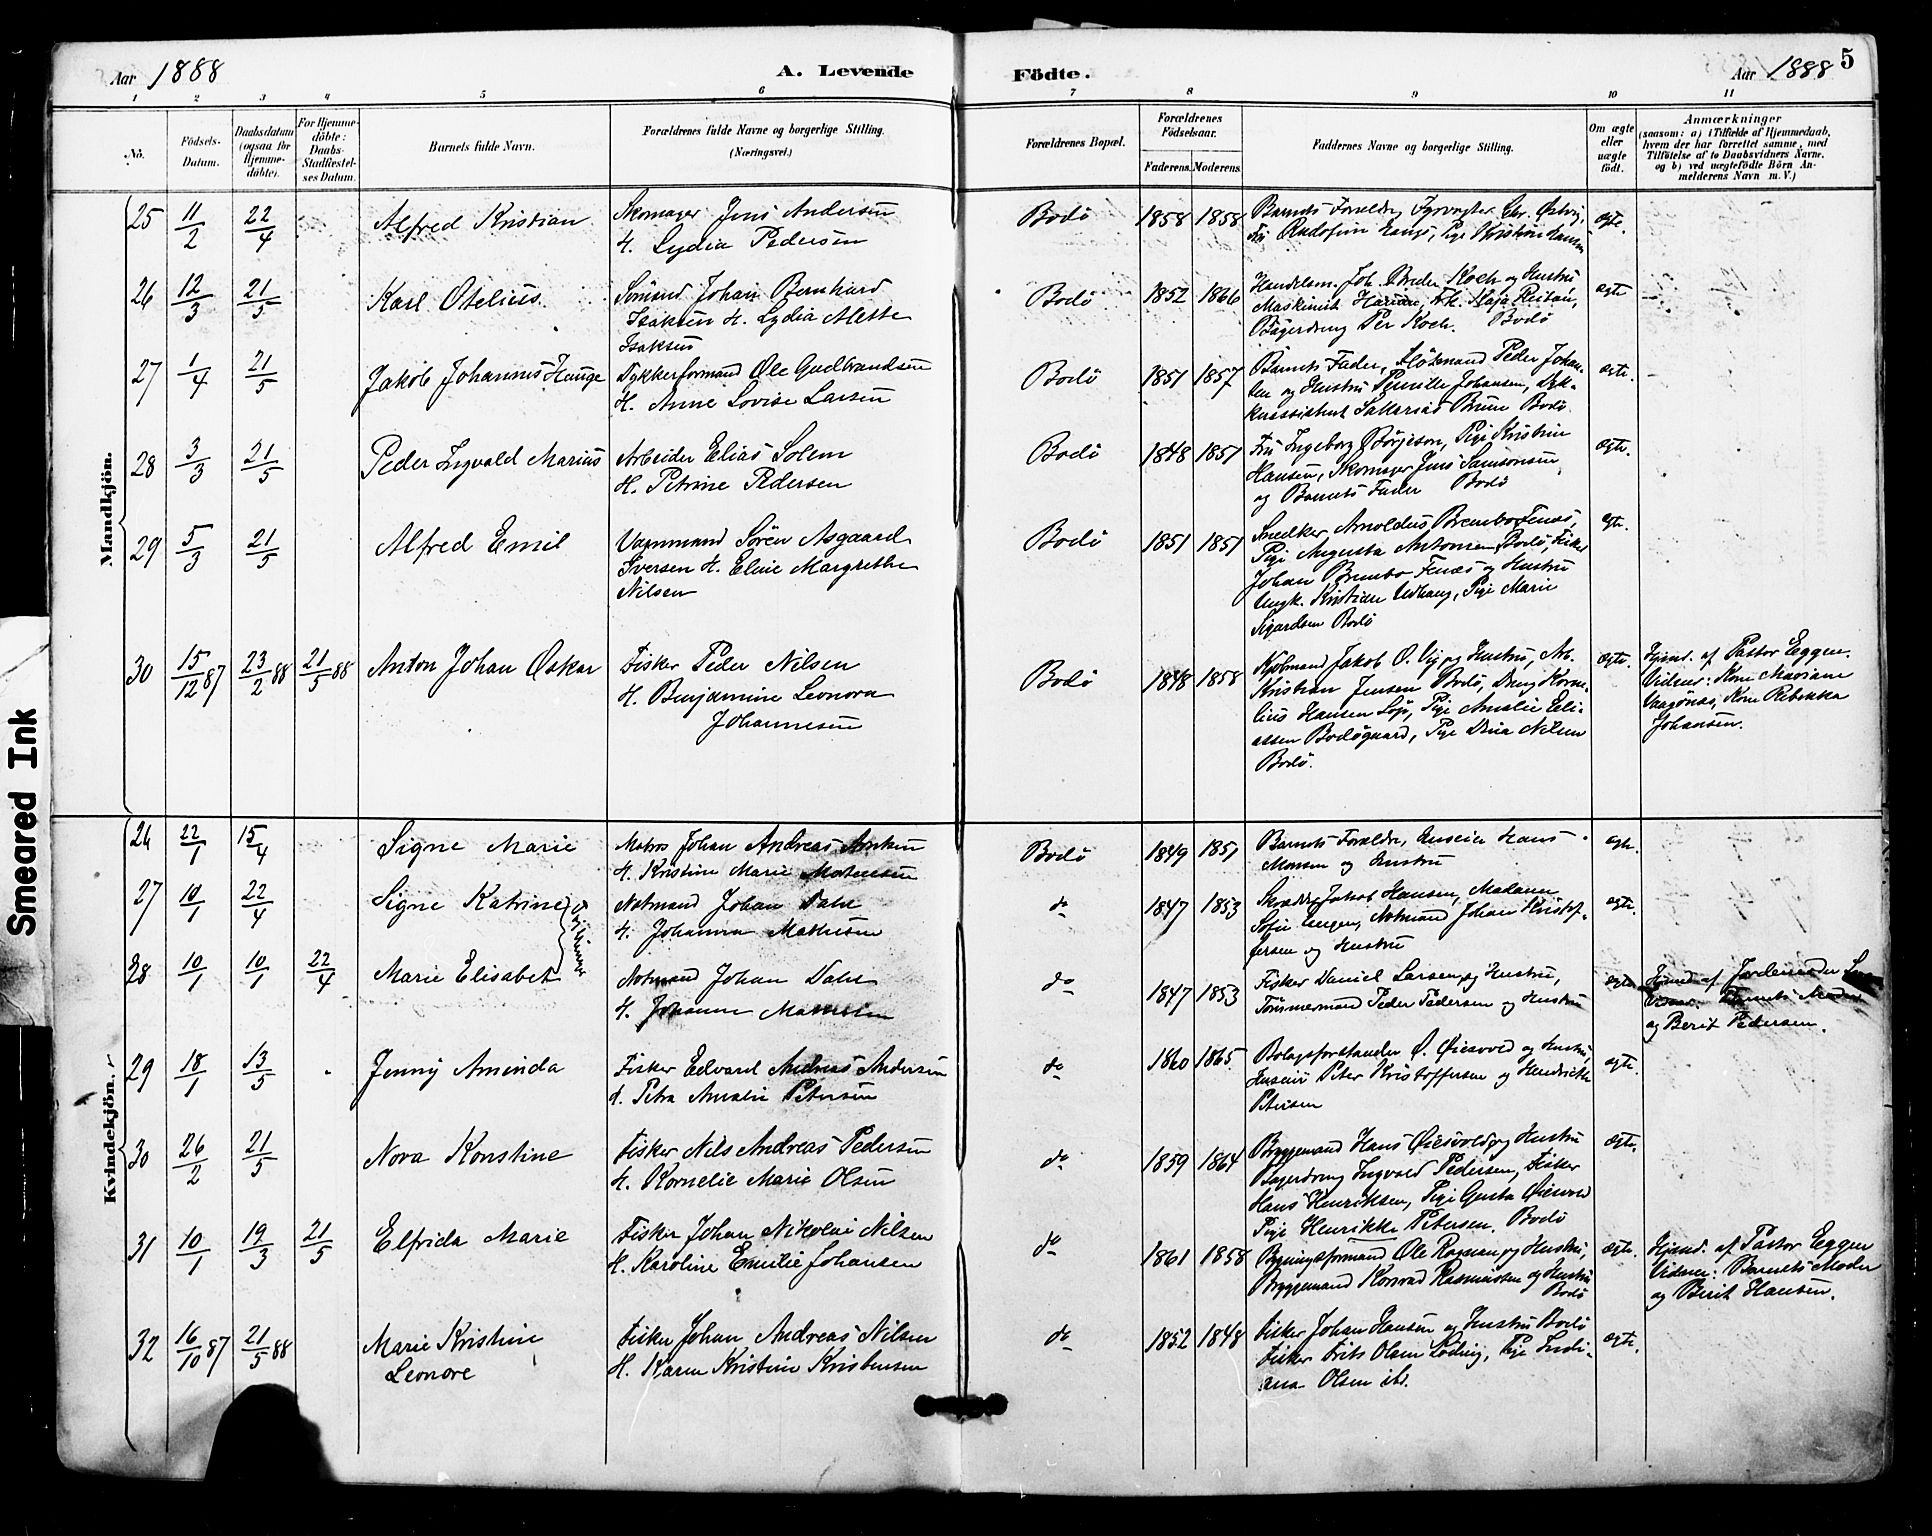 Aar 1888
A. Levende
Födte.
Aar 1888
5
1 2 3 4 5 6 7 8 9 10 11
No.
Födsels-Datum.
Daabsdatum (ogsaa for Hjemmedöbte).
For Hjemmedöbte: Daabs-Stadfestelses Datum.
Barnets fulde Navn.
Forældrenes fulde Navne og borgerlige Stilling.
(Næringsvei.)
Forældrenes Bopæl.
Forældrenes Födselsaar.
Faderens. Moderens.
Faddernes Navne og borgerlige Stilling.
Om ægte eller uægte födt.
Anmærkninger
(saasom: a) i Tilfælde af Hjemmedaab, hvem der har forrettet samme, med Tilföielse af to Daabsvidners Navne, og b) ved uægtefödte Börn Anmelderens Navn m. V.)
Mandkjön.
25 11/2 22/4 Alfred Kristian
Skomager Jens Andersen
H. Lydia Pedersen
Bodø 1858 1858
Barnets Forældre, Fyrvogter Chr.
Pige Kristine Hansen
ægte.
26 12/3 21/5 Karl Otelius
Sømand Johan Bernhard
Isaksen H. Lydia Alette
Isaksen
Bodø 1852 1866
Handelsm. Joh. Koch og Hustru
Maskinist
Per Koch. Bodø
ægte
27 1/4 21/5 Jakob Johannes Hauge
Dykkerformand Ole Gudbrandsen
H. Anne Lovise Larsen
Bodø 1851 1857
Barnets Fader, Peder Johan-
sen og Hustru Pernille Johansen, Dyk-
kerassistent Sakarias Bruun Bodø.
ægte.
28 3/3 21/5 Peder Ingvald Marius
Arbeider Elias Solem
H. Petrine Pedersen
Bodø 1848 1851
Fru Ingeborg Börjeson, Pige Kristine
Hansen, Skomager Jens Samsonsen
og Barnets Fader Bodø
ægte.
29 5/3 21/5 Alfred Emil
Vognmand Sören Asgaard
Iversen H. Eline Margrethe
Nilsen
Bodø 1851 1851
Snedker Arnoldus Brembo Fenes,
Pige Augusta Antonsen, Bodø, Fisker
Johan Brembo Fenes og Hustru
Ungk. Kristian Pige Marie
Sigardsen Bodø
ægte.
30 15/12 87 23/2 88 21/5 88 Anton Johan Oskar
Fisker Peder Nilsen
H. Benjamine Leonora
Johannesen
Bodø 1848 1858
Kjøbmand Jakob O. Vig og Hustru, Arb.
Kristian Jensen Bodø, Dreng Korne-
lius Hansen Løp, Pige Amalie Eli-
assen Bodøgaard, Pige Dina Nilsen
Bodø.
ægte.
Hjemd. af Pastor Eggen.
Vidner: Kone Mariane
Vaagønæs, Kone Rebekka
Johansen.
Kvindekjön.
26 22/1 15/4 Signe Marie
Matros Johan Andreas
H. Kristine Marie Mortensen
Bodø 1849 1851
Barnets Forældre, Huseier Hans
Monsen og Hustru
ægte.
27 10/1 22/4 Signe Katrine
Notmand Johan Dahl
H. Johanna Mathisen
do 1847 1853
Skrædder Jakob Hansen, Madame
Sofie Notmand Johan Kristof-
fersen og Hustru
ægte.
28 10/1 10/1 22/4 Marie Elisabet
Notmand Johan Dahl
H. Johanna Mathisen
do 1847 1853
Fisker Daniel Larsen og Hustru,
Tømmermand Peder Pedersen og Hustru
ægte
Hjemd. af Jordemoder
Barnets Moder
og Berit Pedersen.
29 18/1 13/5 Jenny Aminda
Fisker Edvard Andreas Andersen
H. Petra Amalie Petersen
do 1860 1865
Bolagsforstander O. Øiesvold og Hustru,
Huseier Peter Kristoffersen og Hendrikke
Petersen
ægte.
30 26/2 21/5 Nova Konstine
Fisker Nils Andreas Pedersen
H. Kornelie Marie Olsen
do 1859 1864
Bryggemand Hans Øiesvold og Hustru
Bagerdreng Ingvald Pedersen, Fisker
Hans Henriksen, Pige Gusta Øiesvold
Pige Henrikke Petersen. Bodø
ægte.
31 10/1 19/3 21/5 Elfrida Marie
Fisker Johan Nikolai Nilsen
H. Karoline Emilie Johansen
do 1861 1858
Bygningsformand Ole og Hustru,
Bryggemand Konrad Rasmussen og Hustru
Bodø
ægte.
Hjemd. af Pastor Eggen
Vidner: Barnets Moder
og Berit Hansen.
32 16/10 87 21/5 88 Marie Kristine
Leonore
Fisker Johan Andreas Nilsen
H. Karen Kristine Kristensen
do 1852 1848
Fisker Johan Hansen og Hustru Bodø
Fisker Frits Olsen Løding, Pige Indi-
ana Olsen ibd.
ægte.
Smeared Ink